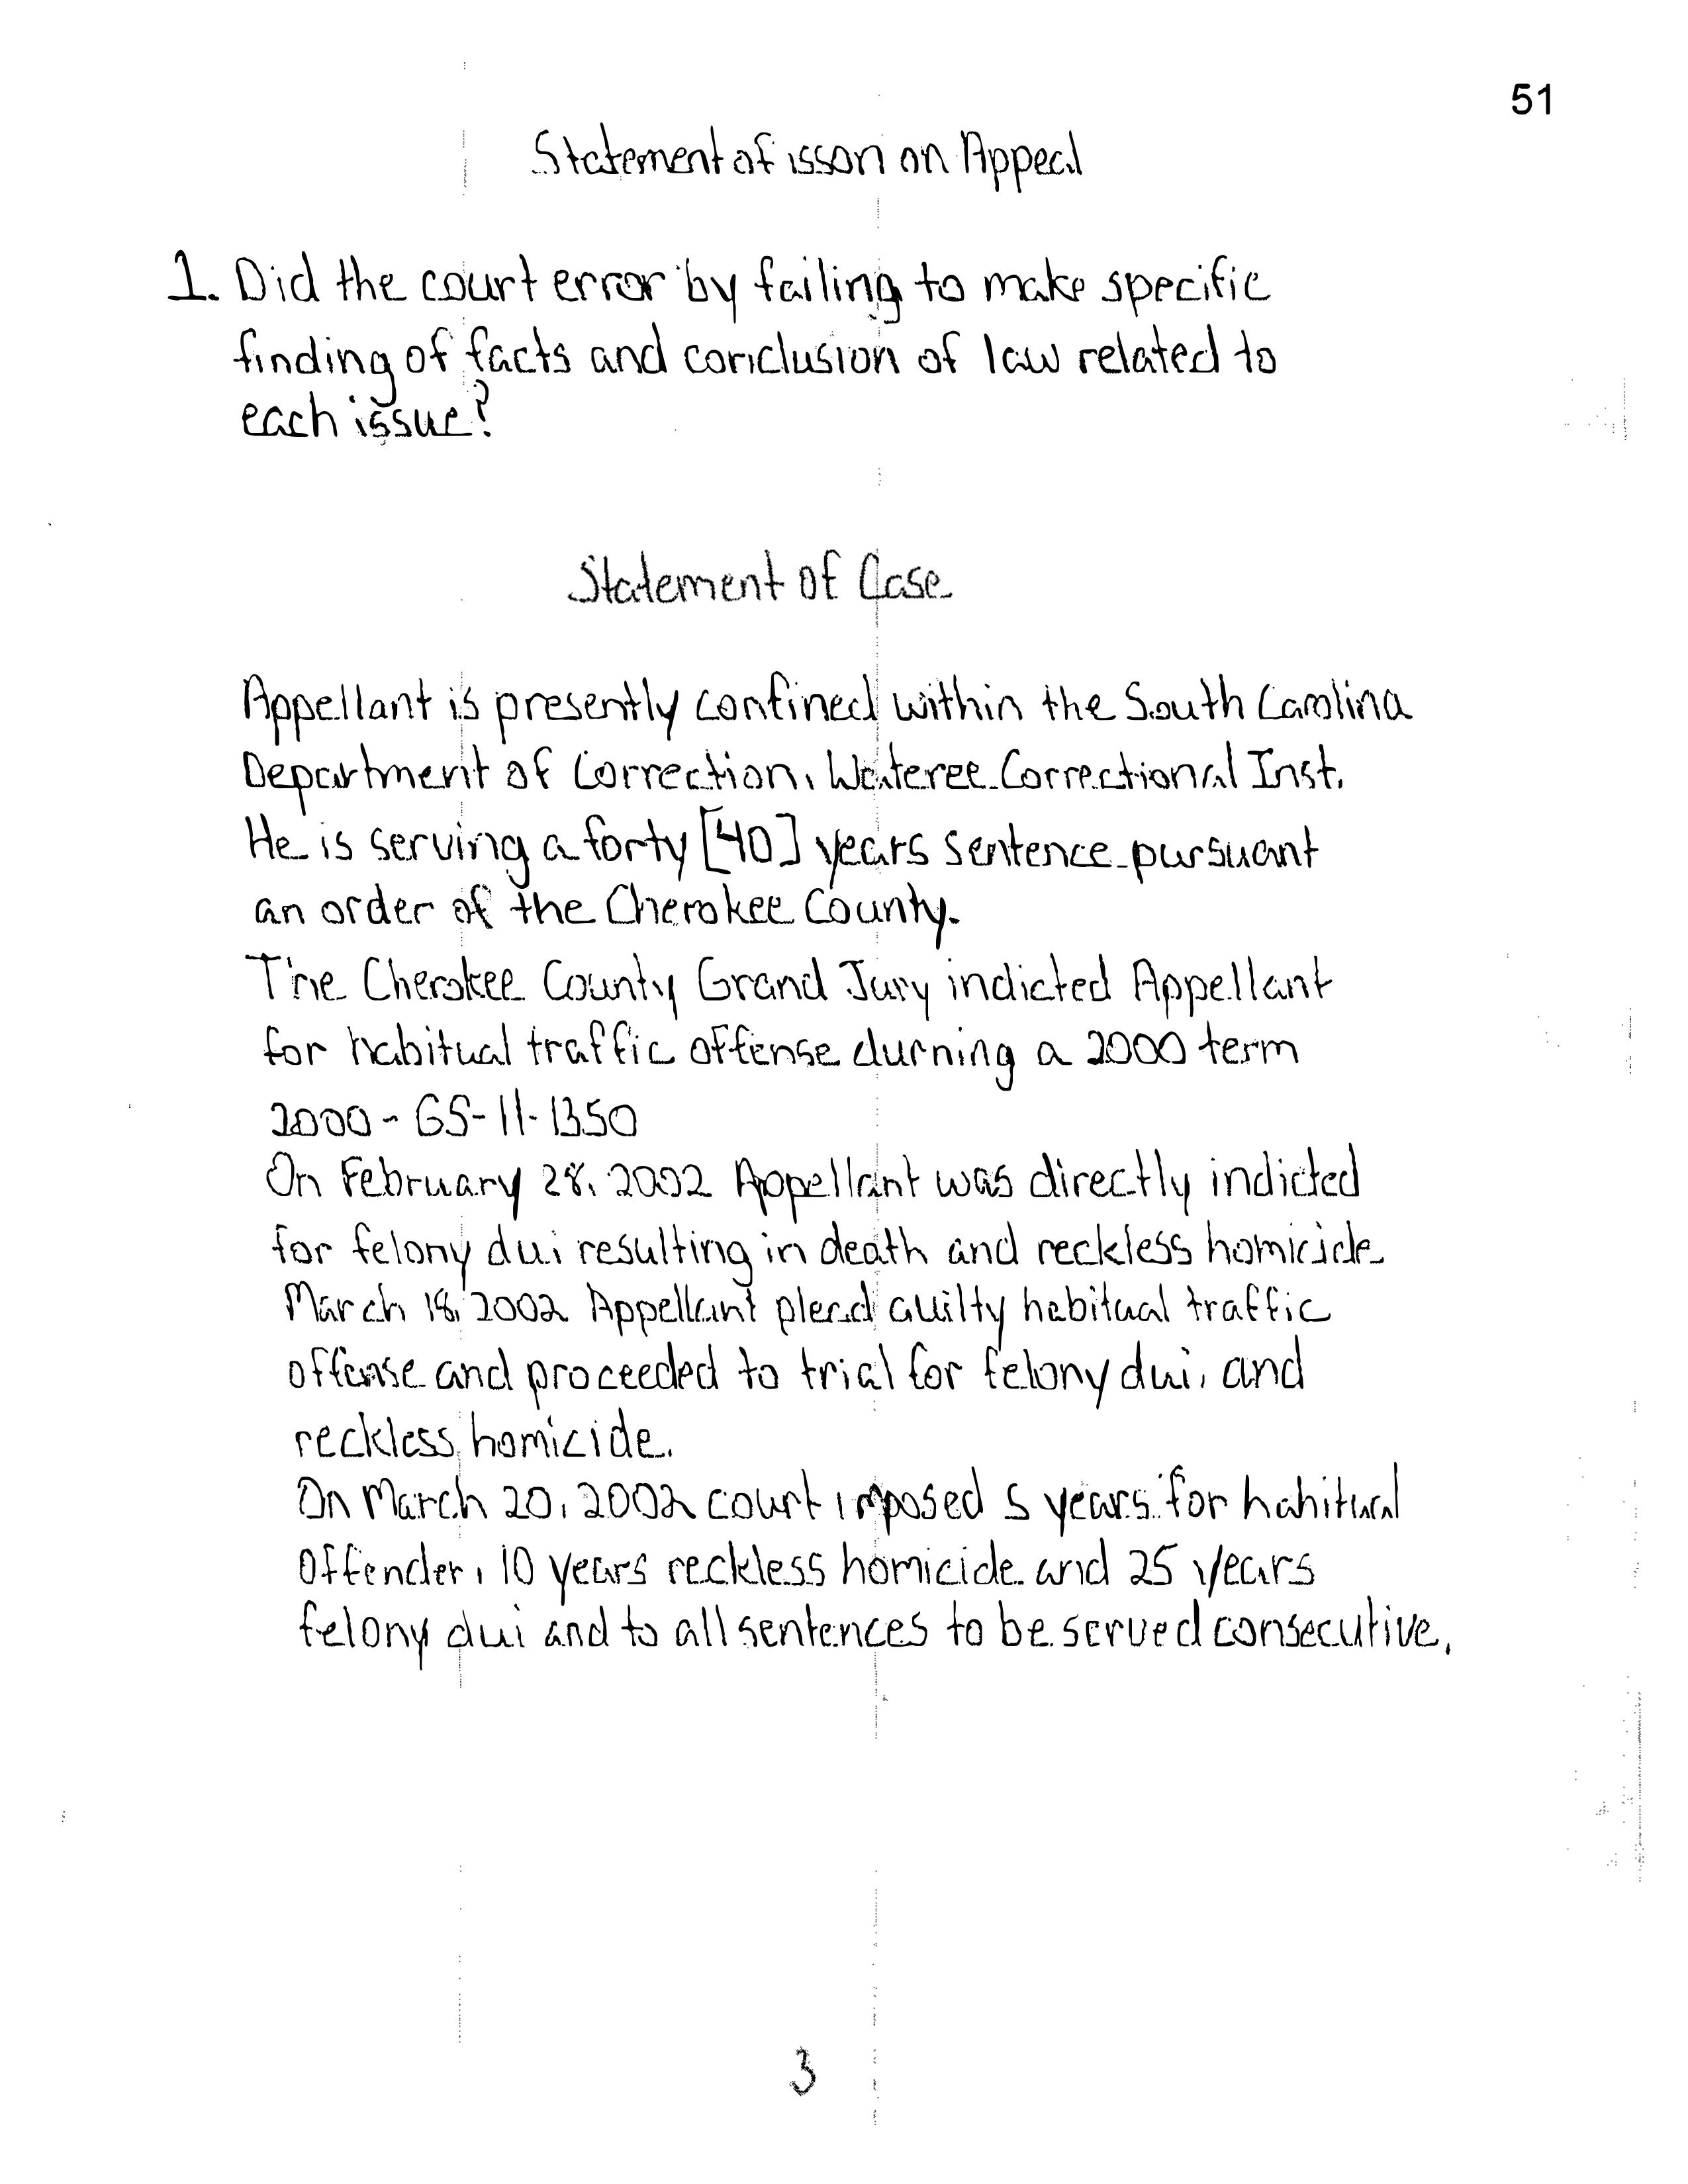 51
Statement of isson on Appeal
1. Did the court error by failing to make specific
finding of facts and conclusion of law related to
each issue?
Statement of Case
Appellant is presently confined within the South Carolina
Department of Correction, Wateree Correctional Inst.
He is serving a forty [40] years sentence pursuant
an order of the Cherokee County.
The Cherokee County Grand Jury indicted Appellant
for habitual traffic offense durning a 2000 term
2000-GS-11-1350
On February 28, 2002 Appellant was directly indicted
for felony dui resulting in death and reckless homicide
March 18, 2002 Appellant plead guilty habitual traffic
offense and proceeded to trial for felony dui, and
reckless homicide.
On March 20, 2002 court imposed 5 years for habitual
Offender, 10 years reckless homicide and 25 years
felony dui and to all sentences to be served consecutive.
3